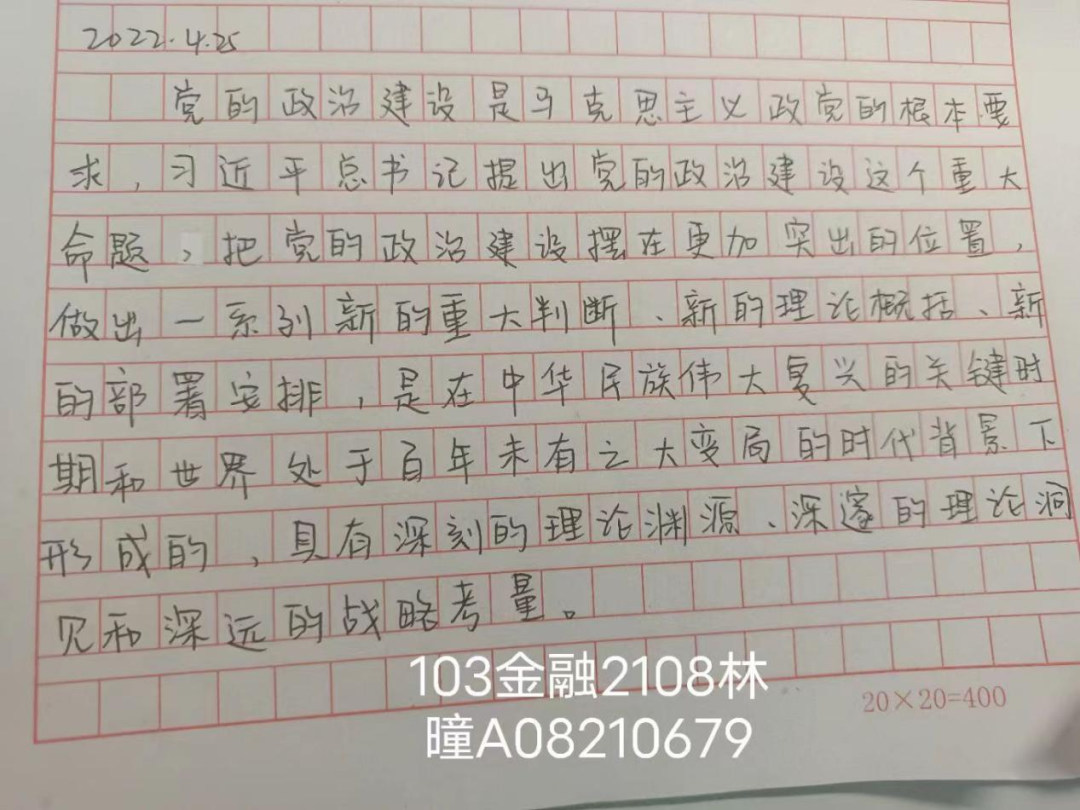 2022.4.25
党的政治建设是马克思主义政党的根本要
求,习近平总书记提出党的政治建设这个重大
命题,把党的政治建设摆在更加突出的位置,
做出一系列新的重大判断、新的理论概括、新
的部署安排,是在中华民族伟大复兴的关键时
期和世界处于百年未有之大变局的时代背景下
形成的,具有深刻的理论渊源、深邃的理论洞
见和深远的战略考量。
103金融2108林
曈A08210679
20×20=400